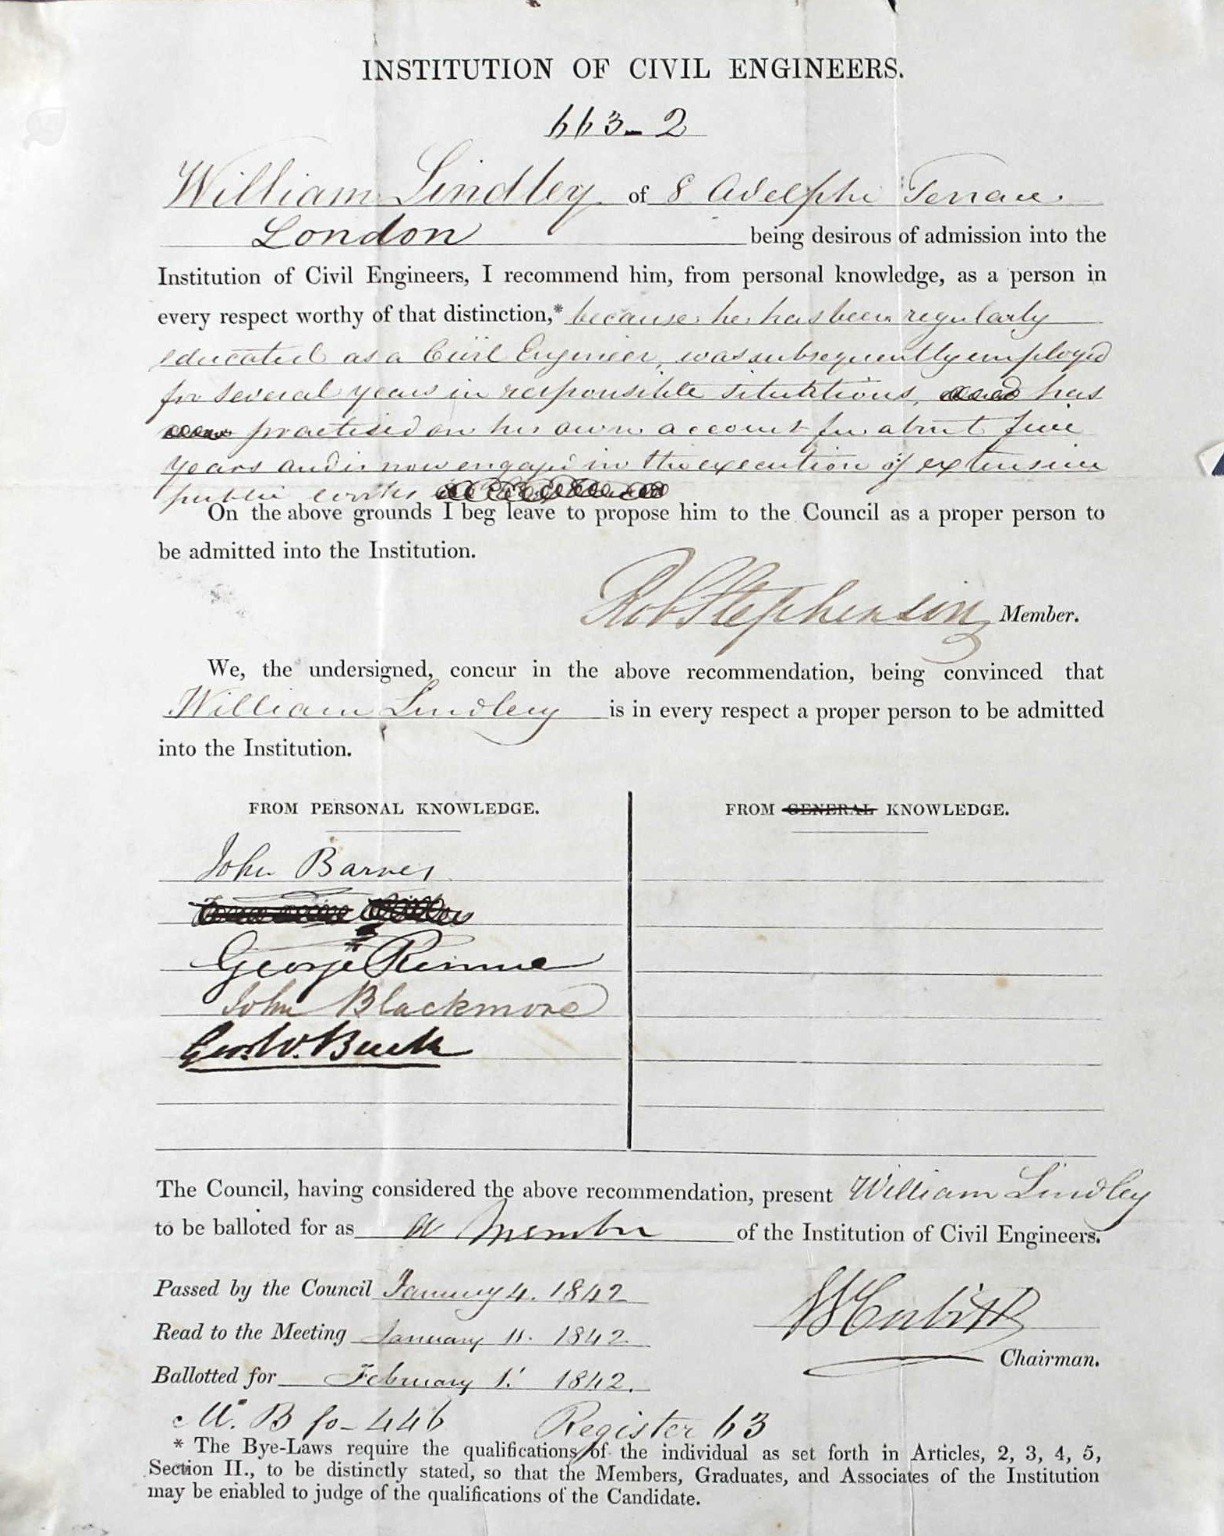 INSTITUTION OF CIVIL ENGINEERS.
663-2
William Lindley of 8 Adelphi Terrace.
London being desirous of admission into the
Institution of Civil Engineers, I recommend him, from personal knowledge, as a person in
every respect worthy of that distinction,* because he has been regularly
educated as a Civil Engineer, was subsequently employed
for several years in responsible situtitions, has
practised on his own account for about five
years and is now engaged in the execution of extensive
public works
On the above grounds I beg leave to propose him to the Council as a proper person to
be admitted into the Institution.
Rob Stephenson Member.
We, the undersigned, concur in the above recommendation, being convinced that
William Lindley is in every respect a proper person to be admitted
into the Institution.
FROM PERSONAL KNOWLEDGE.
FROM GENERAL KNOWLEDGE.
John Barnes
George Rennie
John Blackmore
Geo. W. Buck
The Council, having considered the above recommendation, present William Lindley
to be balloted for as a Member of the Institution of Civil Engineers.
Passed by the Council January 4. 1842
Read to the Meeting January 11. 1842
Ballotted for February 1. 1842.
W Cubitt
Chairman.
M. B fo- 446 Register 63
* The Bye-Laws require the qualifications of the individual as set forth in Articles, 2, 3, 4, 5,
Section II., to be distinctly stated, so that the Members, Graduates, and Associates of the Institution
may be enabled to judge of the qualifications of the Candidate.